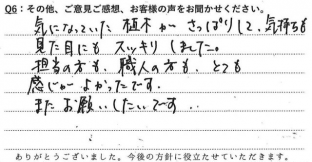 Q6：その他、ご意見ご感想、お客様の声をお聞かせください。
気になっていた 植木が さっぱりして、気持ちも
見た目にも スッキリ しました。
担当の方も、職人の方も、とても
感じがよかったです。
また お願いしたいです．
ありがとうございました。今後の方針に役立たせていただきます。